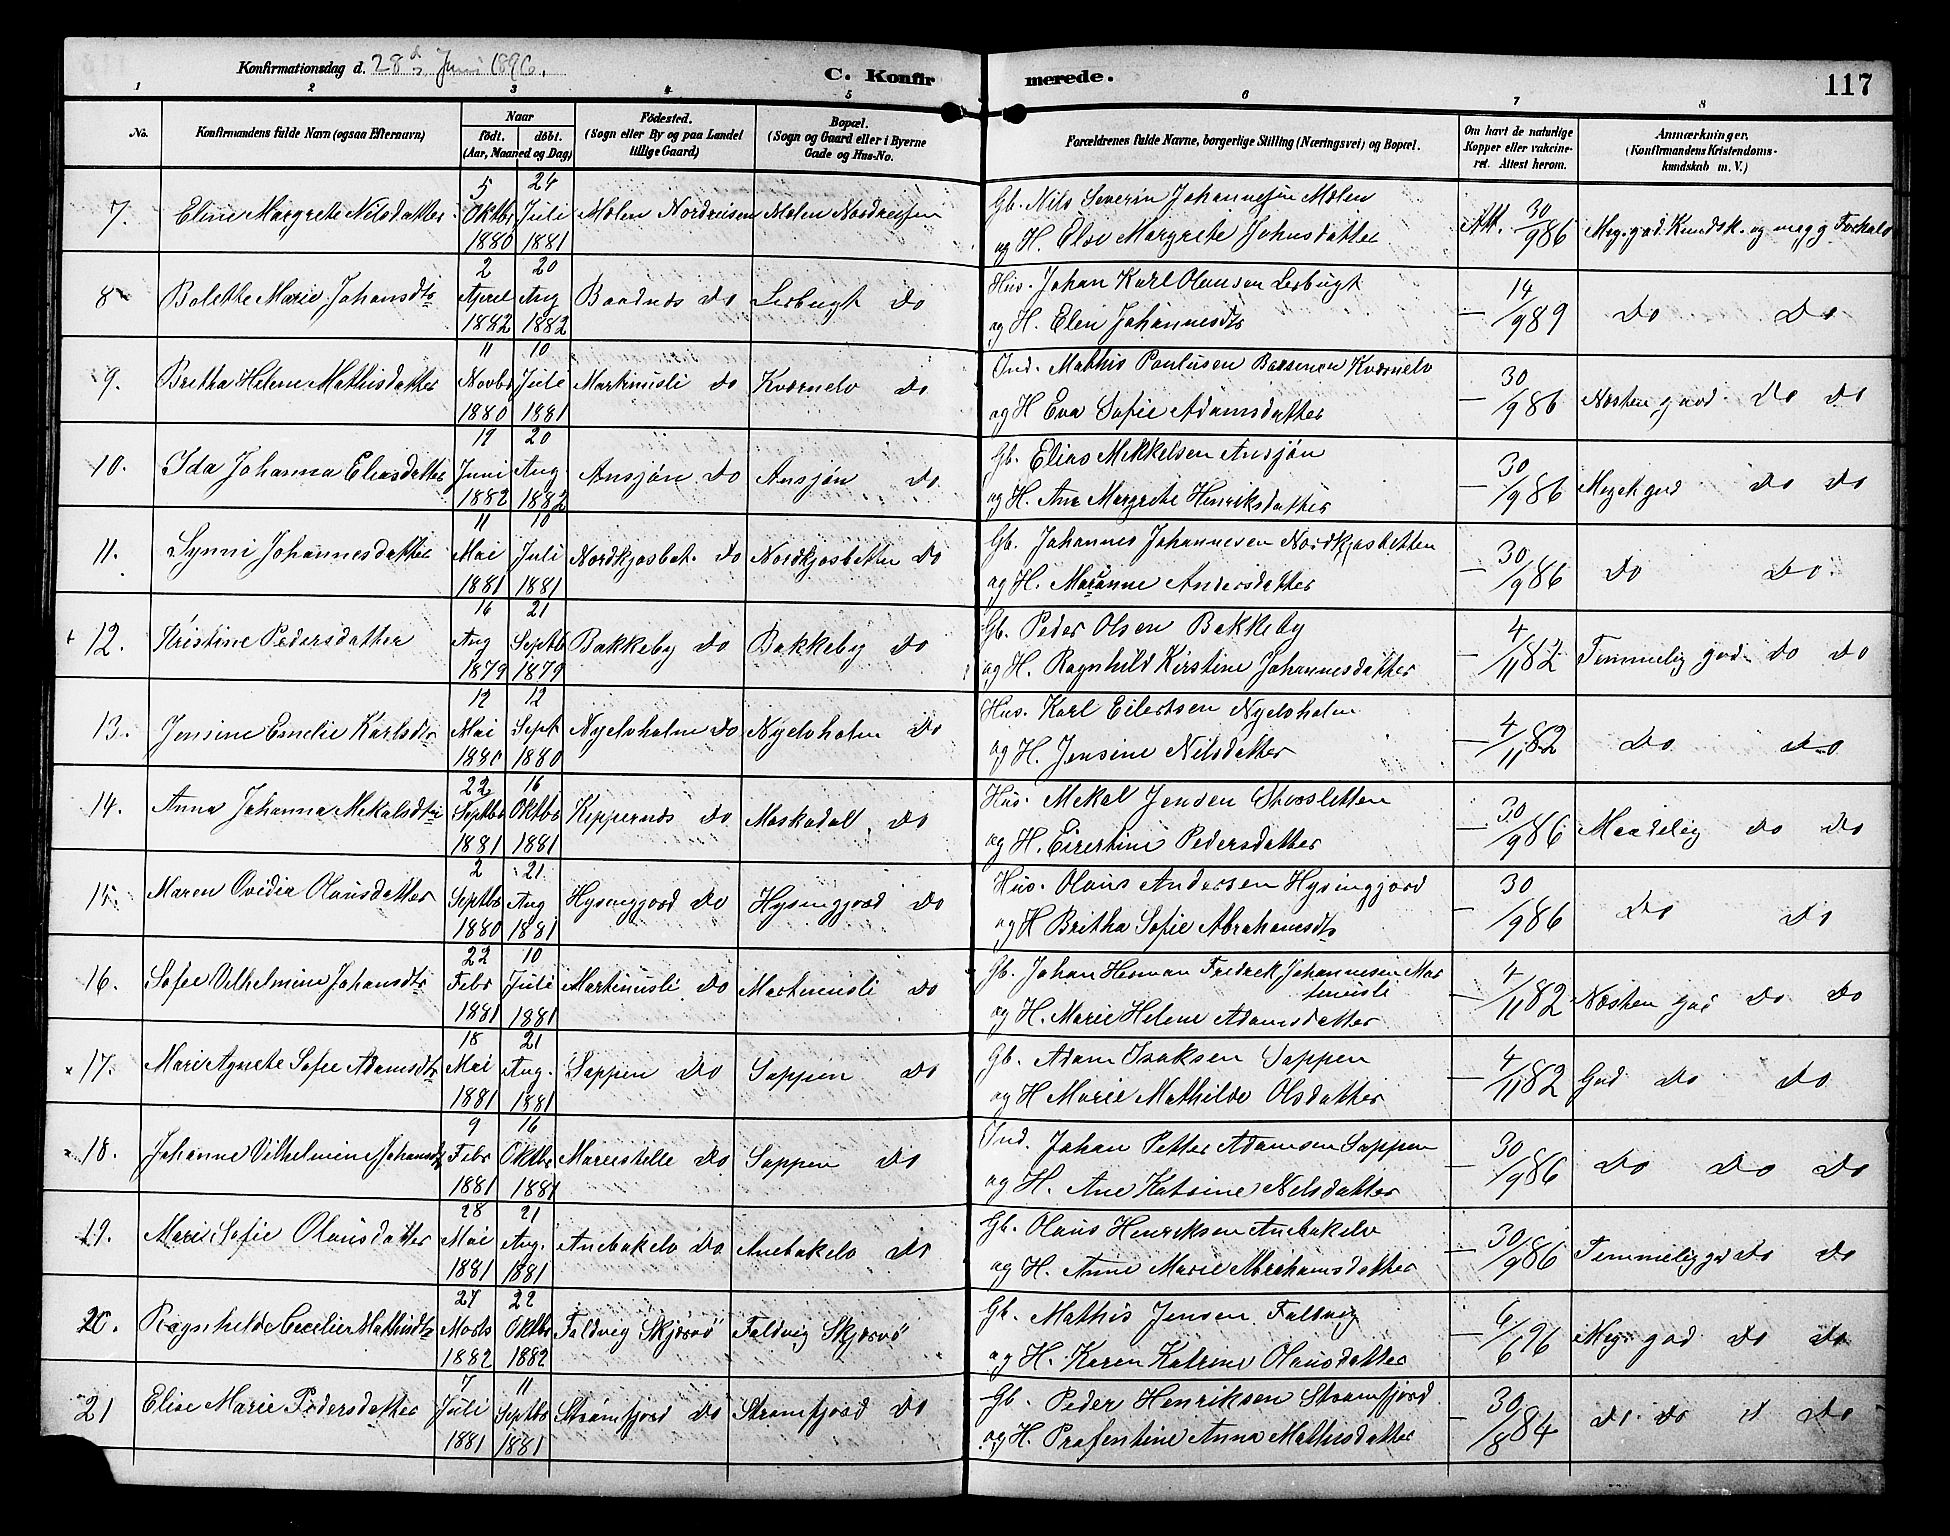 Konfirmationsdag d. 28d Juni 1896.
C. Konfirmerede.
117
1 2 3 4 5 6 7 8
No.
Konfirmandens fulde Navn (ogsaa Efternavn)
Naar
født. døbt.
(Aar, Maaned og Dag)
Fødested.
(Sogn eller By og paa Landet
tillige Gaard)
Bopæl.
(Sogn og Gaard eller i Byerne
Gade og Hus-No.
Forældrenes fulde Navne, borgerlige Stilling (Næringsvei) og Bopæl.
Om havt de naturlige
Kopper eller vakcine-
ret. Attest herom.
Anmærkninger.
(Konfirmandens Kristendoms-
kundskab m. V.)
7. Eline Margrete Nilsdatter 5 Oktbr 1880 24 Juli 1881 Molen Nordreisen Molen Nordreisen
Gb. Nils Severin Johannesen Molen
og H. Else Margrete Johnsdatter
Att. 30/9 86 Meg. god Kundsk. og meg g Forhold
8 Bolette Marie Johansdtr 2 April 1882 20 Aug 1882 Baadnes Do Lerbugt Do
Hus. Johan Karl Olausen Lerbugt
og H. Elen Johannesdtr
— 14/9 89 Do Do
9. Britha Helene Mathisdatter 11 Novbr 1880 10 Juli 1881 Martinusli Do Kværnelv Do
Ind. Mathis Paulusen Bæssenen Kværnelv
og H Eva Sofie Adamsdatter
— 30/9 86 Næsten god Do Do
10. Ida Johanna Eliasdatter 19 Juni 1882 20 Aug 1882 Ansjøn Do Ansjøn Do
Gb. Elias Mekkelsen Ansjøn
og H. Ane Margrete Henriksdatter
— 30/9 86 Meget god Do Do
11. Synni Johannesdatter 11 Mai 1881 10 Juli 1881 Nordkjosbot. Do Nordkjosbotten Do
Gb. Johannes Johannesen Nordkjosbotten
og H. Marianne Andersdatter
— 30/9 86 Do Do.
12. Kristine Pedersdatter 16 Aug 1879 21 Septb 1879 Bakkeby Do Bakkeby Do
Gb. Peder Olsen Bakkeby
og H. Ragnhild Kirstine Johannesdatter
— 4/11 82 Temmelig god Do Do
13. Jensine Emelie Karlsdtr 12 Mai 1880 12 Sept 1880 Nyelvholm Do Nyelvholm Do
Hus. Karl Eilertsen Nyelvholm
og H. Jensine Nilsdatter
— 4/11 82 Do Do
14. Anna Johanna Mekalsdtr 22 Septbr 1881 16 Oktbr 1881 Keppernes Do Maskodal Do
Hus. Mekal Jensen Storsletten
og H. Eirestine Pedersdatter
— 30/9 86 Maadelig Do Do
15. Maren Ovidia Olausdatter 2 Septbr 1880 21 Aug 1881 Hysingjord Do Hysingjord Do
Hus. Olaus Andersen Hysingjord
og H Britha Sofie Abrahamsdtr
— 30/9 86 Do Do
16. Sofie Vilhelmine Johansdtr 22 Febr 1881 10 Juli 1881 Martinusli Do Martinusli Do
Gb. Johan Herman Fredrek Johannesen Martinusli
og H. Marie Helene Adamsdatter
— 4/11 82 Næsten god Do Do
17. Mari Agnete Sofie Adamsdtr 18 Mai 1881 21 Aug. 1881 Sappen Do Sappen Do
Gb. Adam Isaksen Sappen
og H Marie Mathilde Olsdatter
— 4/11 82 God Do Do
18. Johanne Vilhelmine Johansdtr 9 Febr 1881 16 Oktbr 1881 Do Sappen Do
Ind. Johan Petter Adamsen Sappen
og H. Ane Katrine Nelsdatter
— 30/9 86 Do Do Do
19. Mari Sofie Olausdatter 28 Mai 1881 21 Aug. 1881 Anebakelv Do Anebakelv Do
Gb. Olaus Henriksen Anebakelv
og H. Anne Marie Abrahamsdatter
— 30/9 86 Temmelig god Do Do
20. Ragnhilde Cecilie Mathisdtr 27 Marts 1882 22 Oktbr 1882 Taldvig Skjervø Taldvig Skjervø
Gb. Mathis Jensen Taldvig
og H. Karen Katrine Olausdatter
— 6/6 96 Meg. god Do Do
21 Elise Marie Pedersdatter 7 Juli 1881 11 Septbr 1881 Strømfjord Do Strømfjord Do
Gb. Peder Henriksen Strømfjord
og H. Prafentine Anna Mathisdatter
— 30/8 84 Do Do Do